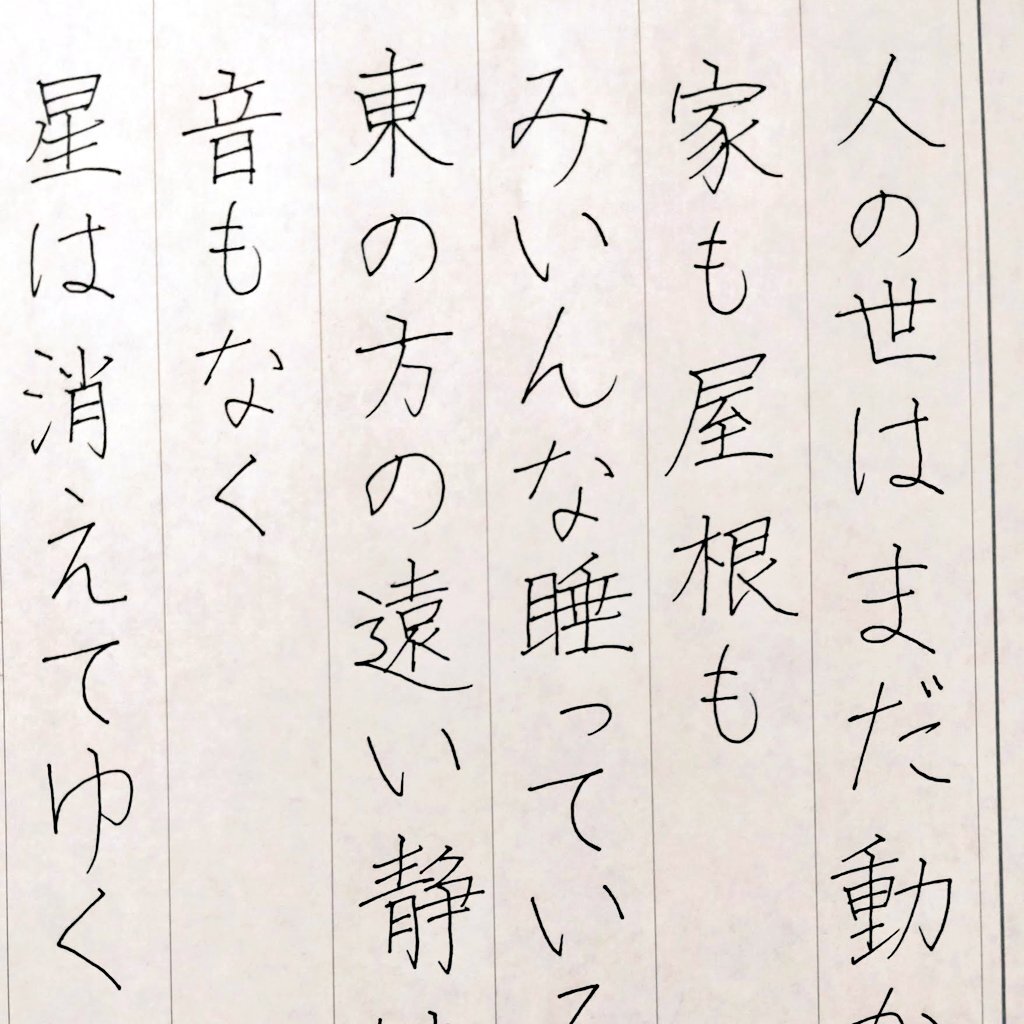 人の世はまだ動か
家も屋根も
みいんな睡っている
東の方の遠い静け
音もなく
星は消えてゆく